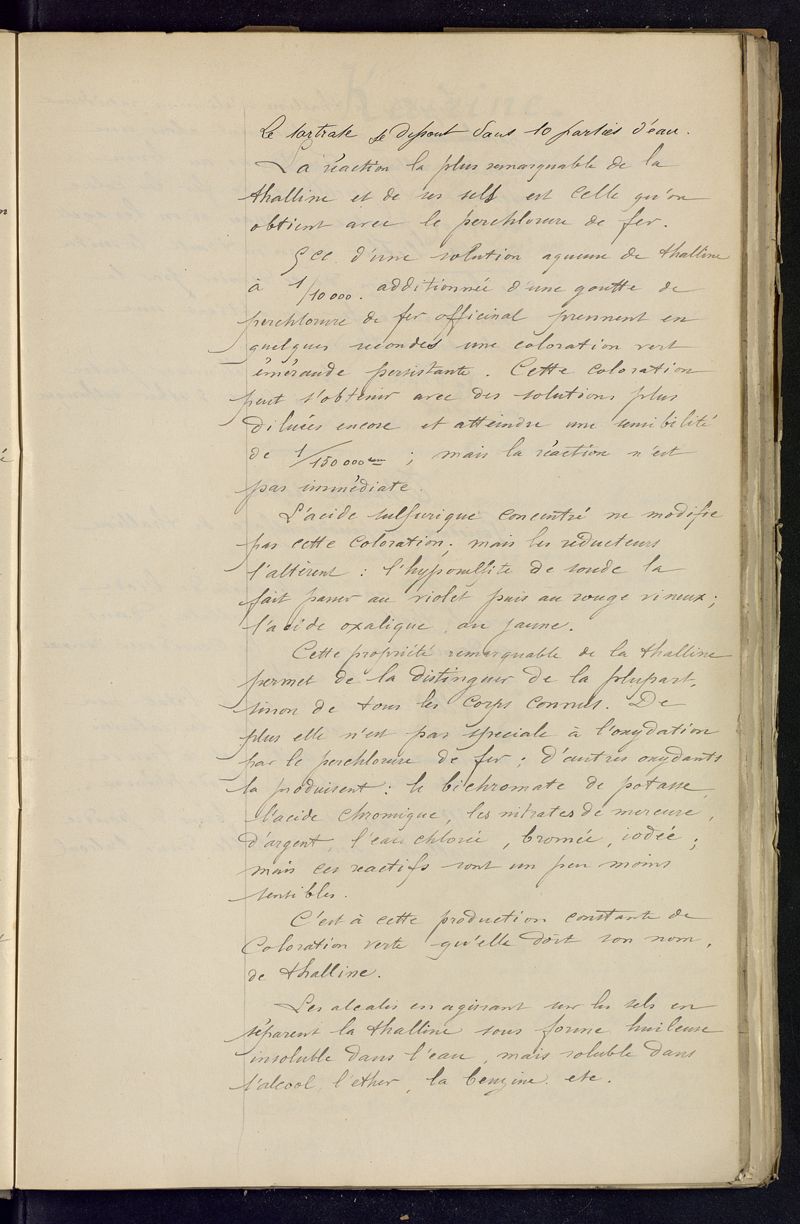 Le tartrate se dissout dans 10 parties d'eau.
La réaction la plus remarquable de la
thalline et de ses sels est celle qu'on
obtient avec le perchlorure de fer.
5cc d'une solution aqueuse de thalline
à 1/10 000. additionnée d'une goutte de
perchlorure de fer officinal prennent en
quelques secondes une coloration vert
émeraude persistante. Cette coloration
peut s'obtenir avec des solutions plus
diluées encore et atteindre une sensibilité
de 1/150 000 ; mais la réaction n'est
pas immédiate.
L'acide sulfurique concentré ne modifie
pas cette coloration ; mais les réducteurs
l'altèrent : l'hyposulfite de soude la
fait passer au violet puis au rouge vineux ;
l'acide oxalique, au jaune.
Cette propriété remarquable de la thalline
permet de la distinguer de la plupart,
sinon de tous les corps connus. De
plus elle n'est pas speciale à l'oxydation
par le perchlorure de fer ; d'autres oxydants
la produisent : le bichromate de potasse,
l'acide chromique, les nitrates de mercure,
d'argent, l'eau chlorée, bromée, iodée ;
mais ces reactifs sont un peu moins
sensibles.
C'est à cette production constante de
Coloration verte qu'elle doit son nom,
de thalline.
Les alcalis en agissant sur les sels en
séparent la thalline sous forme huileuse
insoluble dans l'eau, mais soluble dans
l'alcool, l'ether, la benzine. etc.